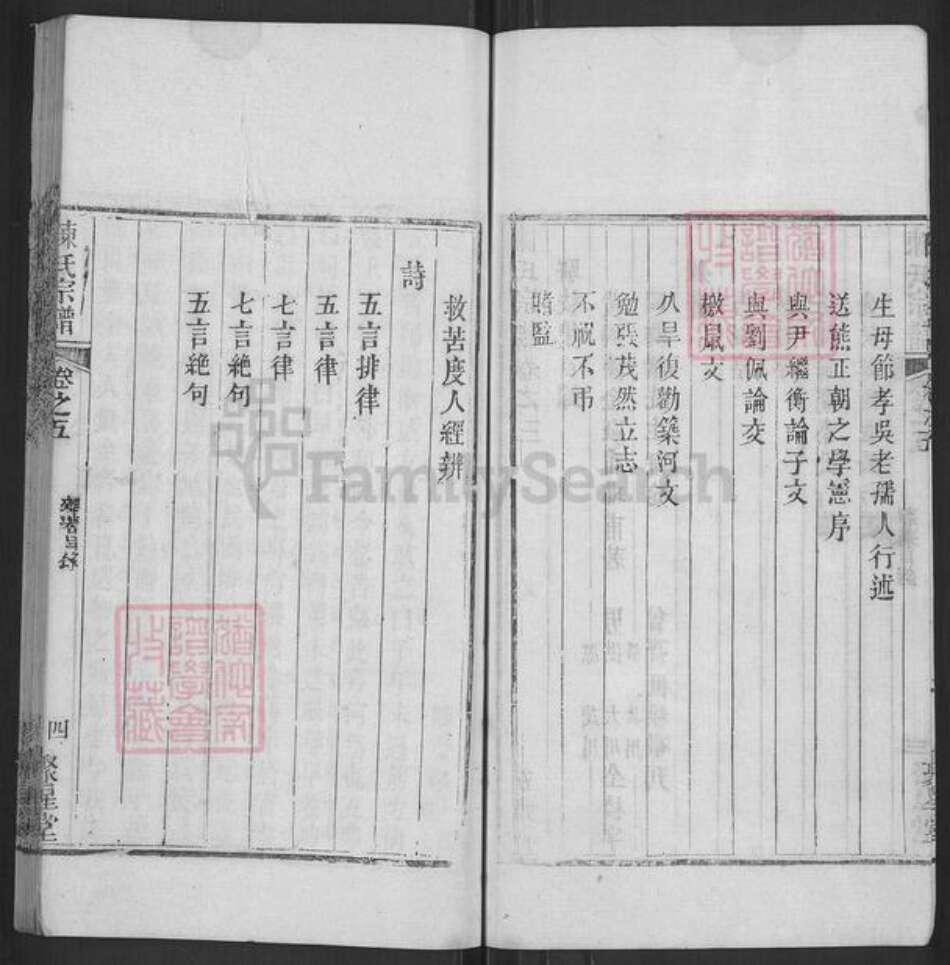 生母節孝吳老孺人行述
送熊正朝之學憲序
與尹繼衡論子文
與劉佩論交
檄鼠文
久旱復勸築河文
勉張茂然立志
不祝不弔
賭監
救苦度人經辨
詩
五言排律
五言律
七言律
七言絶句
五言絶句
陳氏宗譜
卷之五
四
聚星堂
FamilySearch